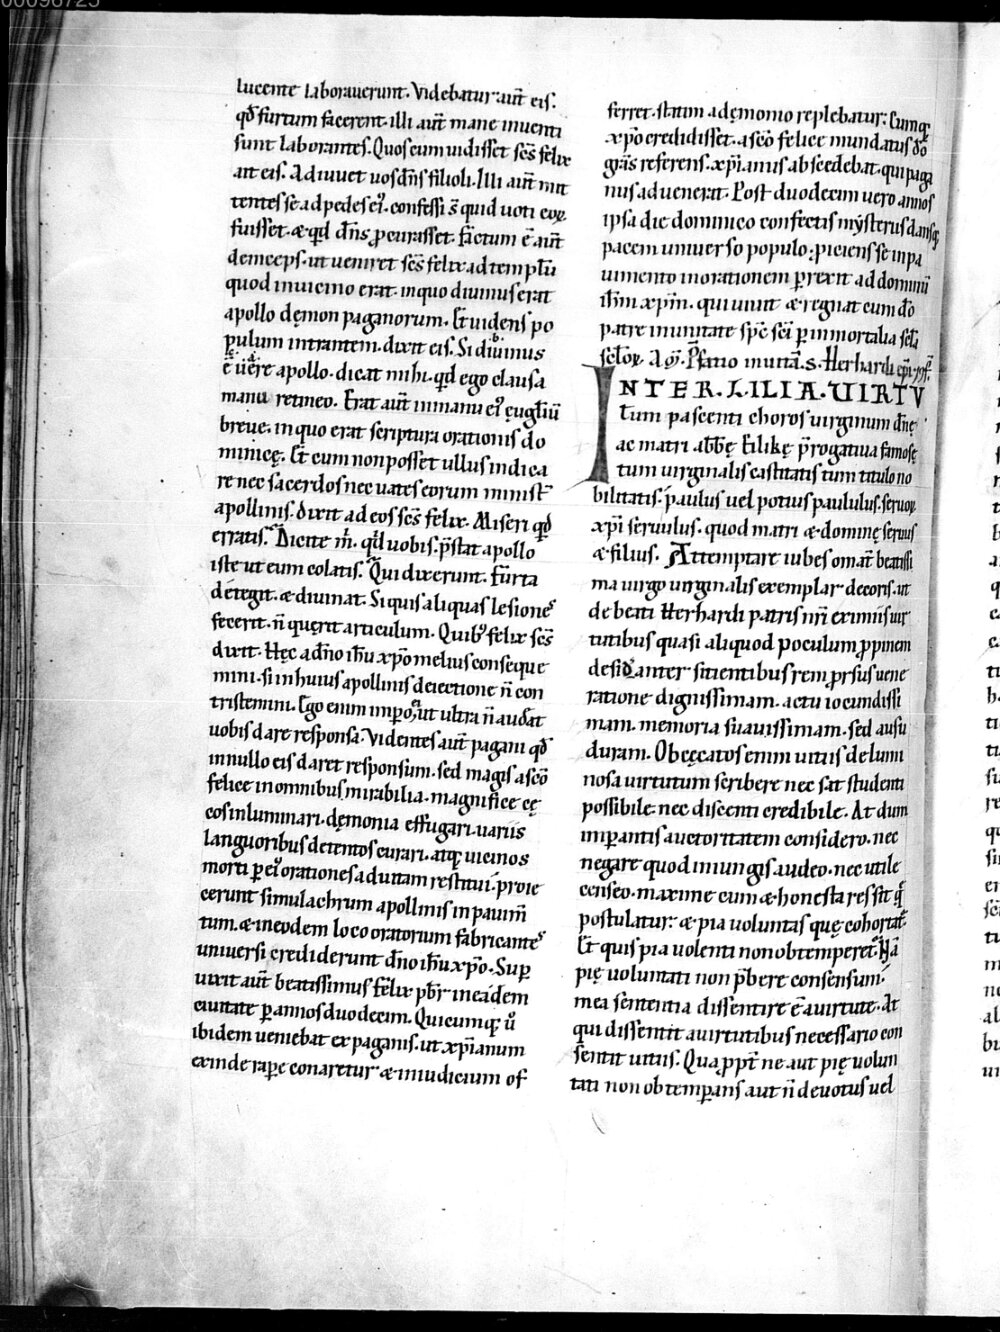 00096725
lucente laborauerunt. Videbatur aut̄ eis.
qđ furtum facerent. illi aut̄ mane inuenti
sunt laborantes. Quos cum uidisset sc̄s felix
ait eis. Adiuuet uos dn̄s filioli. Illi aut̄ mit
tentes se ad pedes ei᷒. confessi s̄ quid uoti eoꝝ
fuisset. & qđ dn̄s ꝓcurasset. Factum ē aut̄
deinceps. ut ueniret sc̄s felix ad templū
quod in uicino erat. in quo diuinus erat
apollo dęmon paganorum. Et uidens po
pulum intrantem. dixit eis. Si diuinus
ē uere apollo. dicat mihi. qđ ego clausa
manu retineo. Erat aut̄ in manu ei᷒ ęuglīū
breue. in quo erat scriptura orationis do
minicę. Et cum non posset ullus indica
re nec sacerdos nec uates eorum minist̄
apollinis. dixit ad eos sc̄s felix. Miseri qđ
erratis. Dicite m̄. qđ uobis. p̄stat apollo
iste ut eum colatis. Qui dixerunt. Furta
detegit. & diuinat. Si quis aliquas lesiones
fecerit. n̄ querit articulum. Quib᷒ felix sc̄s
dixit. Hęc a dn̄o ih̄u xp̄o melius conseque
mini. si in huius apollinis deiectione n̄ con
tristemini. Ego enim imꝑo ei᷒. ut ultra n̄ audeat
uobis dare responsa. Videntes aut̄ pagani qđ
in nullo eis daret responsum. sed magis a sc̄o
felice in omnibus mirabilia. magnifice cę
cos inluminari. dęmonia effugari. uariis
languoribus detentos curari. atq; uicinos
morti ꝑ ei᷒ orationes ad uitam restitui. proie
cerunt simulachrum apollinis in pauim̄
tum. & in eodem loco oratorium fabricantes
uniuersi crediderunt dn̄o ih̄u xp̄o. Suꝑ
uixit aut̄ beatissimus felix pb̄r in eadem
ciuitate ꝑ annos duodecim. Quicumq; u͛
ibidem ueniebat ex paganis. ut xp̄ianum
exinde raꝑe conaretur & in iudicium of
ferret. statim a dęmonio replebatur. Cumq;
xp̄o credidisset. a sc̄o felice mundatus dō
gr̄as referens. xp̄ianus abscedebat. qui paga
nus aduenerat. Post duodecim uero annos
ipsa die dominico confectis mysteriis dansq;
pacem uniuerso populo. ꝓiciens se in pa
uimento in orationem ꝑrexit ad dominū
ih̄m xp̄m. qui uiuit & regnat cum dō
patre in unitate sp̄c sc̄i ꝑ inmortalia sclā
scl̄oꝝ. Am̄. P̄fatio in uitā. s. Herhardi ep̄i
INTER. LILIA. VIRTV
tum pascenti choros uirginum dn̄ę
ac matri abb̄ę Eilikę p̄rogatiua famosę
tum uirginalis castitatis tum titulo no
bilitatis. paulus uel potius paululus. seruoꝝ
xp̄i seruulus. quod matri & dominę seruus
& filius. Attemptare iubes om̄at beatissi
ma uirgo uirginalis exemplar decoris. ut
de beati Herhardi patris nr̄i eximiis uir
tutibus quasi aliquod poculum ꝓpinem
desideranter sitientibus rem prorsus uene
ratione dignissimam. actu iocundissi
mam. memoria suauissimam. sed ausu
duram. Obcęcatos enim uitiis de lumi
nosa uirtutum scribere nec sat studenti
possibile. nec discenti credibile. At dum
imꝑantis auctoritatem considero. nec
negare quod iniungis audeo. nec utile
censeo. maxime cum & honesta res sit quę
postulatur. & pia voluntas quę cohortat᷒.
Et quis pia uolenti non obtemperet. Nā
pię uoluntati non p̄bere consensum.
mea sententia dissentire ē a uirtute. At
qui dissentit a uirtutibus necessario con
sentit uitiis. Qua ꝓpt̄ ne aut pię volun
tati non obtemꝑans aut n̄ deuotus uel